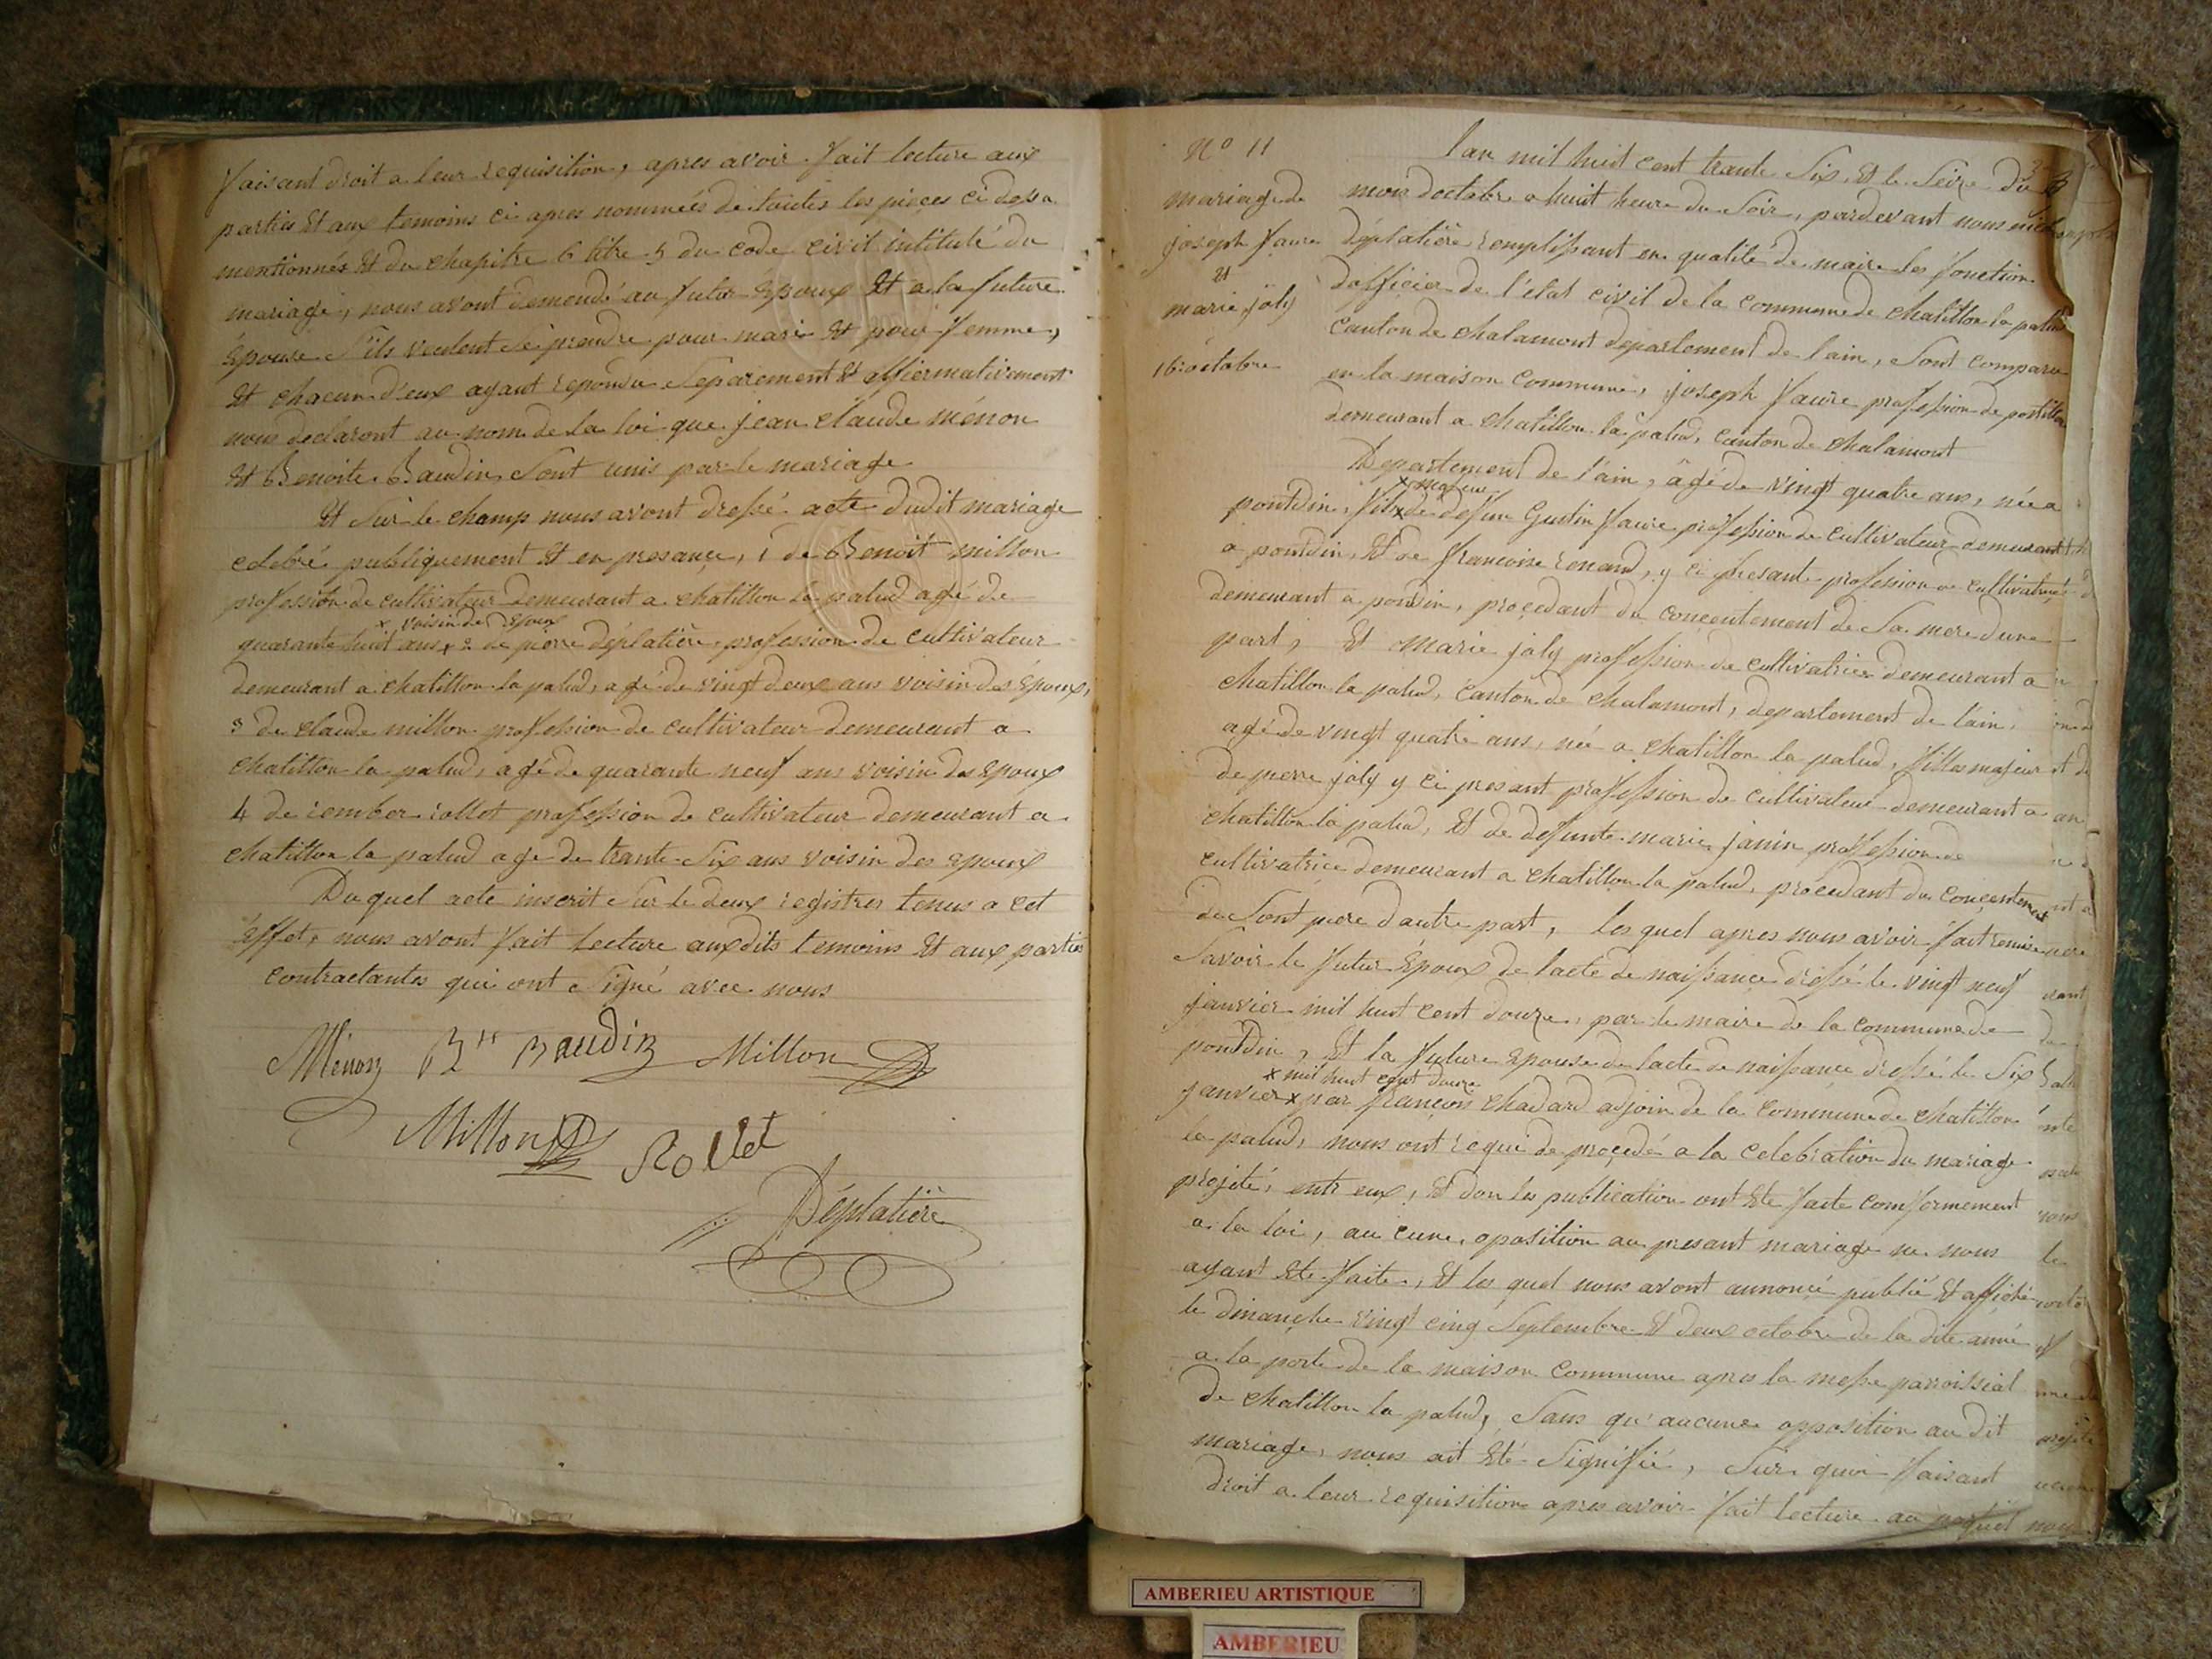 faisant droit a leur requisition, apres avoir fait lecture aux
parties et aux temoins ci apres nommées de toutes les pieces ci desa
mentionnés et du chapitre 6 titre 5 du code civil intitulé du
mariage, nous avont demendé au futur Epoux et a la future
Epouse s'ils veulent se prendre pour mari et pour femme,
et chacun d'eux ayant repondu separement et affiermativement
nous declaront au nom de la loi que jean claude ménon
et Benoite Baudin sont unis par le mariage
et sur le champ nous avont dressé acte dudit mariage
celebré publiquement et en presance, 1 de Benoit millon
profession de cultivateur demeurant a chatillon la palud agé de
x voisin de Epoux
quarante huit ans x 2 de pierre déplatière profession de cultivateur
demeurant a chatillon la palud, agé de vingt deux ans voisin des époux,
3 de claude millon profession de cultivateur demeurant a
chatillon la palud, agé de quarante neuf ans voisin des Epoux
4 de rember rollet profession de cultivateur demeurant a
chatillon la palud agé de trante six ans voisin des epoux
Du quel acte inscrit sur le deux registres tenus a cet
Effet, nous avont fait lecture auxdits temoins et aux parties
contractantes qui ont signé avec nous
Ménon Bte Baudin Millon
Millon Rollet
Déplatière
N° 11
mariage de
joseph faure
et
marie joly
16 octobre
lan mil huit cent trante six, et le seize du
mois doctobre a huit heure du soir, pardevant nous
déplatière remplissant en qualité de maire les fonction
dofficier de l'état civil de la commune de chatillon la palud
canton de chalamont departement de lain, sont comparu
en la maison commune, joseph faure profession de postillon
demeurant a chatillon la palud, canton de chalamont
Departement de l'ain, âgé de vingt quatre ans, née a
x majeur
pontdin, fils x de defun Gustin faure profession de cultivateur demeurant
a pontdin, et de francoise renand, y ci presante profession de cultivatrice
demeurant a pondin, procedant du concentement de sa mere dune
part, et marie joly profession de cultivatrice demeurant a
chatillon la palud, canton de chalamont, departement de lain,
agé de vingt quatre ans, née a chatillon la palud, filles majeur
de pierre joly y ci presant profession de cultivateur demeurant a
chatillon la palud, et de defunte marie janin profession de
cultivatrice demeurant a chatillon la palud, procedant du concentement
de sont pere dautre part, les quel apres nous avoir fait remise
savoir le futur époux de lacte de naissance dressé le vingt neuf
janvier mil huit cent douze, par le maire de la commune de
pontdin, et la future epouse de lacte de naissance dressé le six
x mil huit cent douze
janvier x par françois chadard adjoin de la commune de chatillon
la palud, nous ont requi de procedé a la celebration du mariage
projeté, entr eux, et don les publication ont ete faite comformement
a la loi, au cune oposition au presant mariage ne nous
ayant ete faite, et les quel nous avont annoncé publié et affiché
le dimanche vingt cinq septembre et deux octobre de la dite anné
a la porte de la maison commune apres la messe parroissial
de chatillon la palud, sans qu'aucune opposition au dit
mariage, nous ait été signifié, sur quoi faisant
droit a leur requisition apres avoir fait lecture
AMBERIEU ARTISTIQUE
AMBERIEU